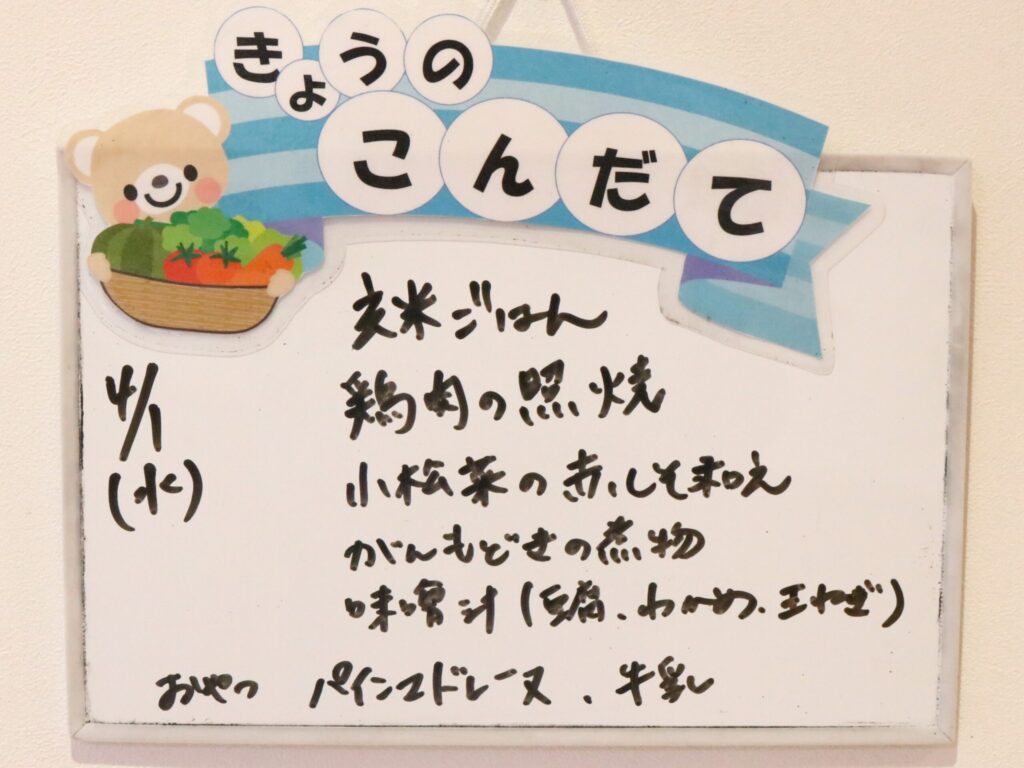 きょうの
こんだて
玄米ごはん
4/1
(水)
鶏肉の照焼
小松菜の赤しそ和え
がんもどきの煮物
味噌汁(豆腐、わかめ、玉ねぎ)
おやつ パインマドレーヌ、牛乳